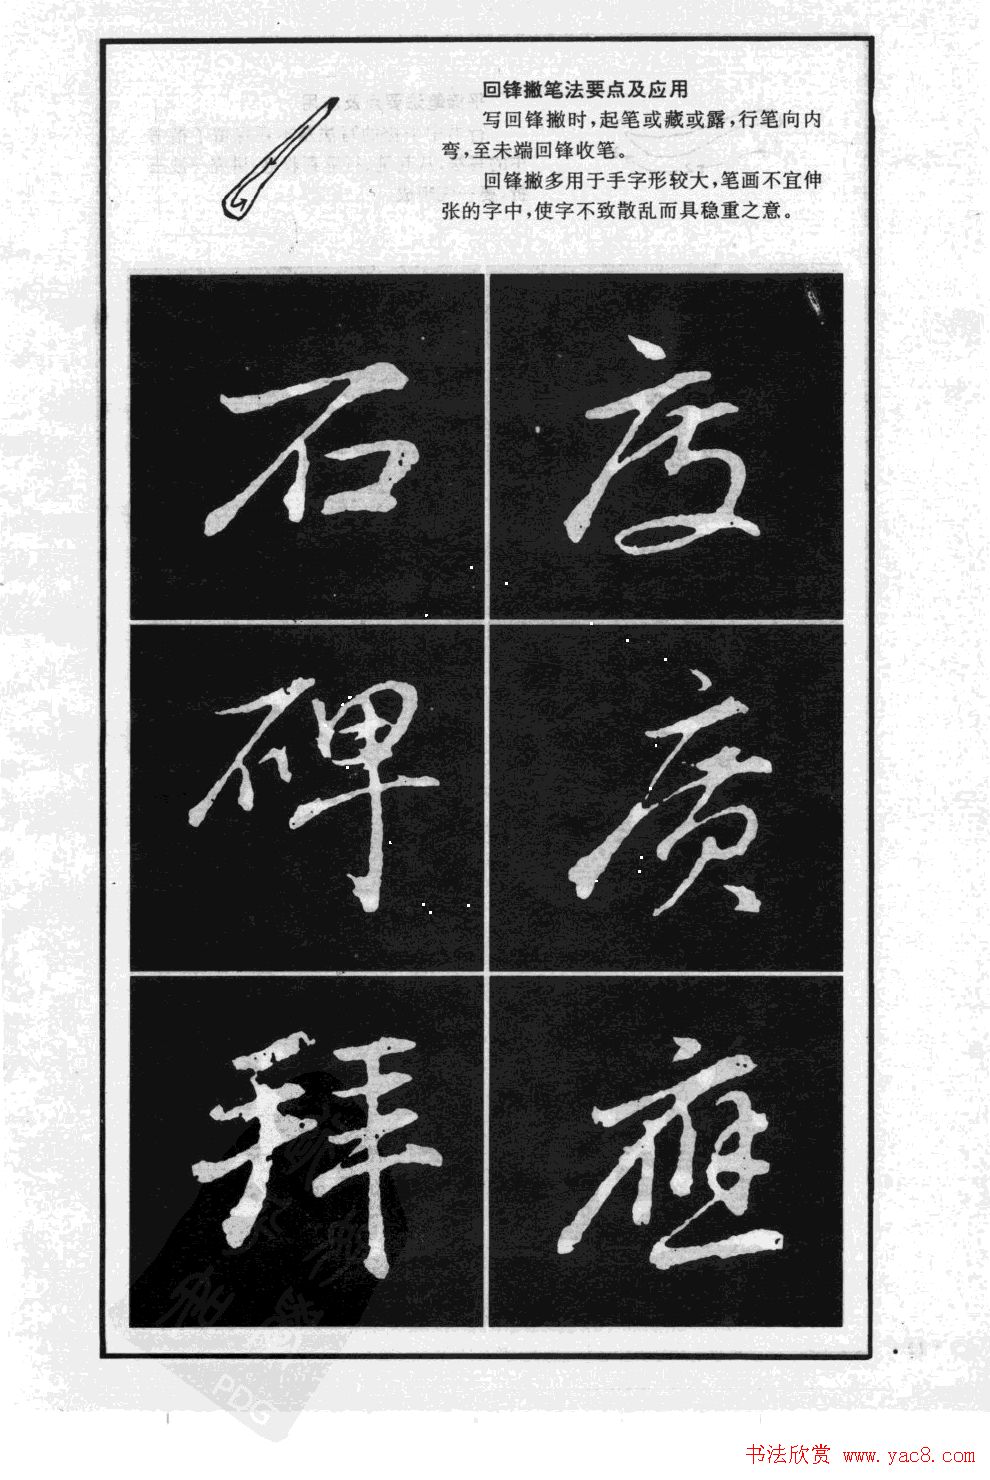 回锋撇笔法要点及应用
写回锋撇时,起笔或藏或露,行笔向内
弯,至未端回锋收笔。
回锋撇多用于手字形较大,笔画不宜伸
张的字中,使字不致散乱而具稳重之意。
石 度
碑 廣
拜 應
PDG
书法欣赏 www.yac8.com